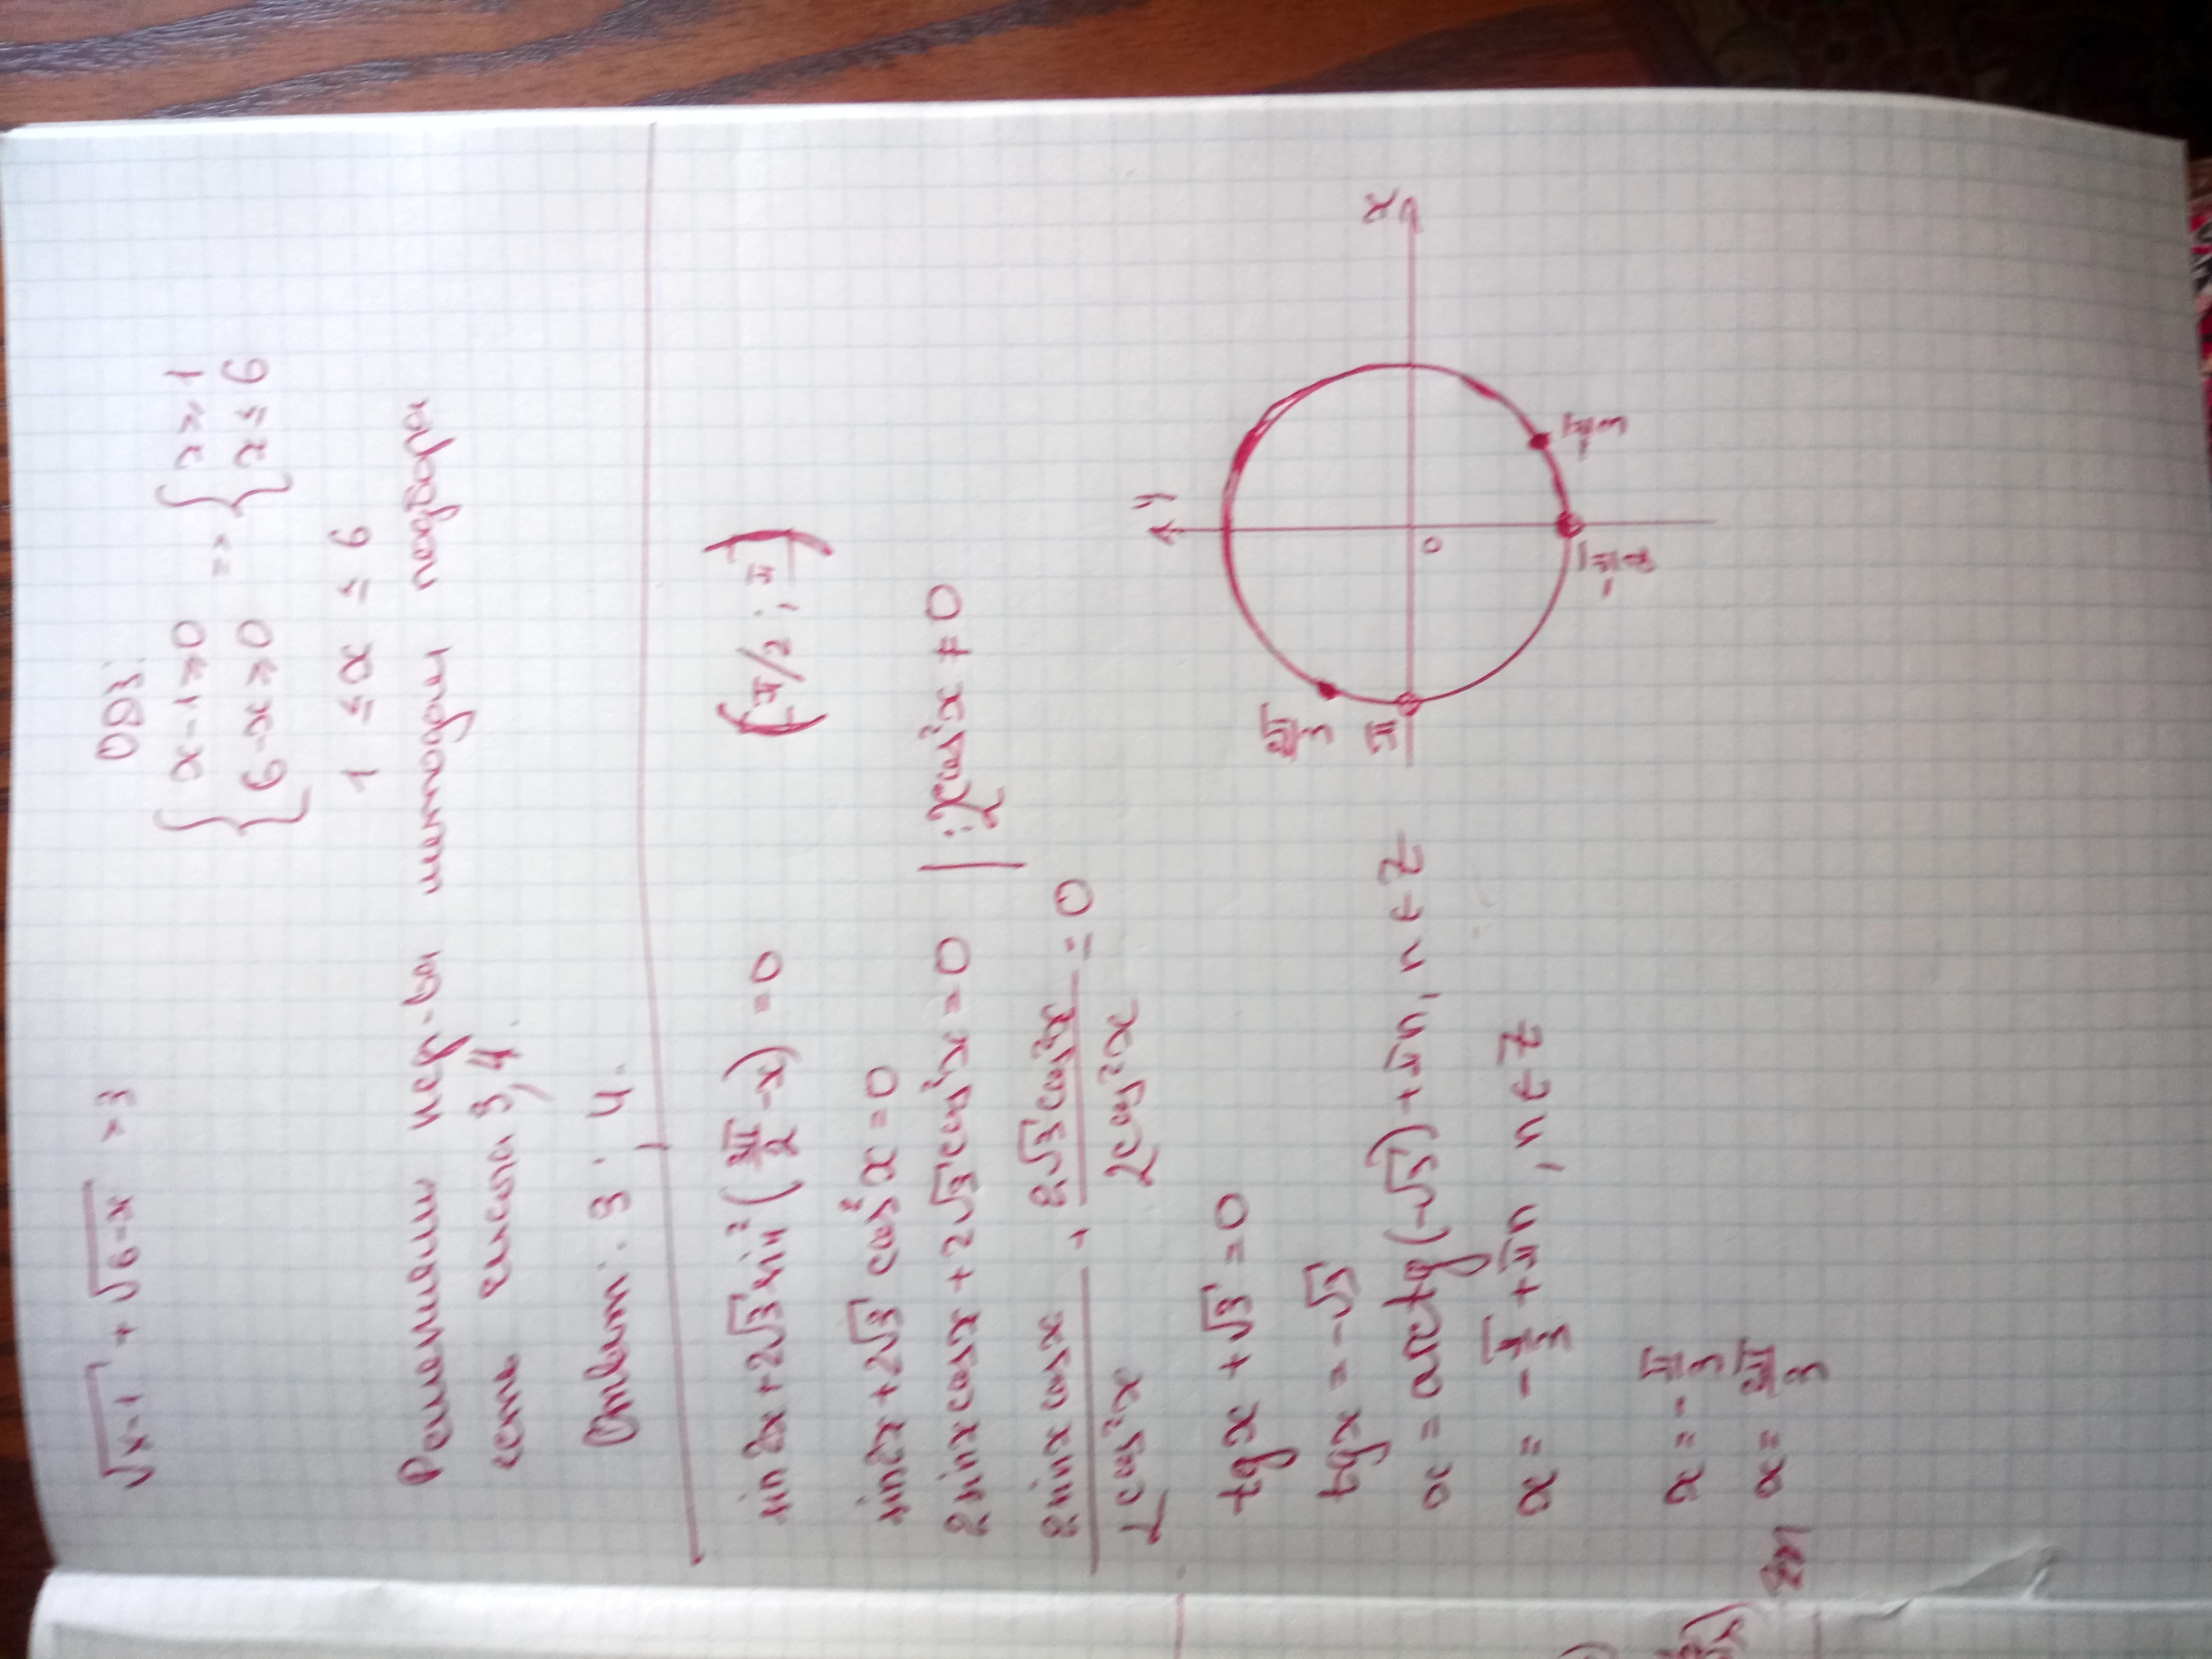 √x-1 + √6-x > 3
ОДЗ:
{ x-1 ≥ 0 => { x ≥ 1
{ 6-x ≥ 0 { x ≤ 6
1 ≤ x ≤ 6
подбора
есть числа 3, 4.
Ответ: 3; 4.
sin2x + 2√3 sin²(3π/2 - x) = 0
sin2x + 2√3 cos²x = 0
2 sinx cosx + 2√3 cos²x = 0 | : 2cos²x ≠ 0
2 sinx cosx / 2cos²x + 2√3 cos²x / 2cos²x = 0
tg x + √3 = 0
tg x = -√3
x = arctg(-√3) + πn, n ∈ Z
x = -π/3 + πn, n ∈ Z
x = -π/3
x = 2π/3
y
x
0
2π/3
π
-π/2
-π/3